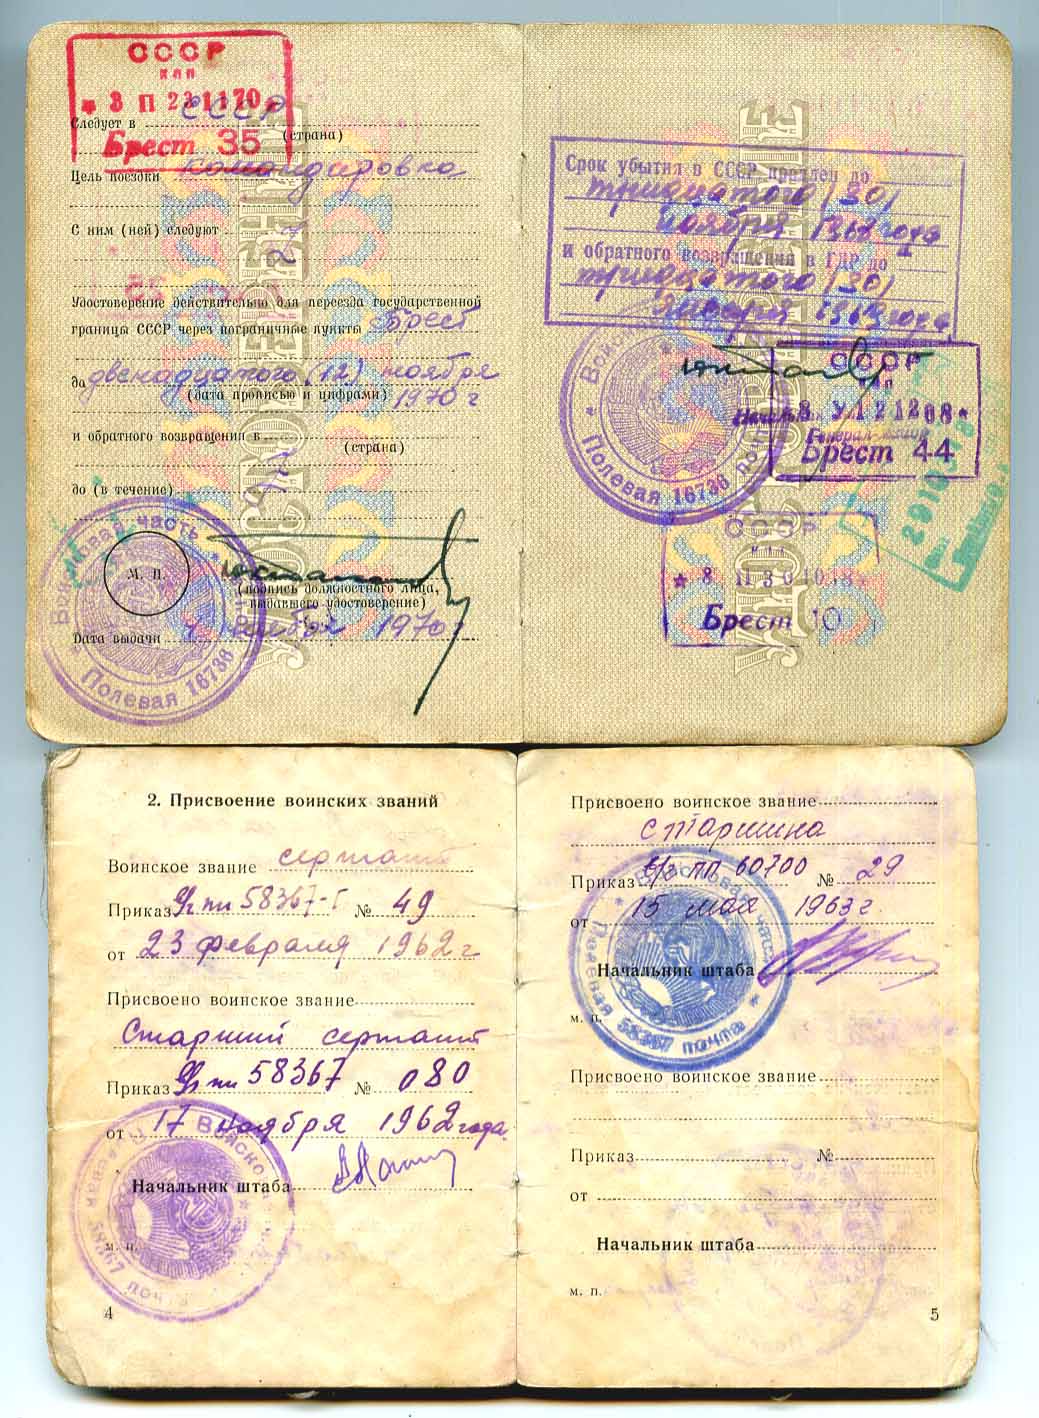 СССР
КПП
3 П 231170
Брест 35
Следует в СССР
(страна)
Цель поездки командировка
С ним (ней) следуют
Удостоверение действительно для переезда государственной
границы СССР через пограничные пункты Брест
до двенадцатого (12) ноября
(дата прописью и цифрами) 1970 г
и обратного возвращения в
(страна)
до (в течение)
М. П.
(подпись должностного лица,
выдавшего удостоверение)
Дата выдачи ноября 1970
Войсковая часть
Полевая 16736
УДОСТОВЕРЕНИЕ
Срок убытия в СССР продлен до
тридцатого (30)
ноября 1968 года
и обратного возвращения в ГДР до
тридцатого (30)
января 1969 года
СССР
8 У 121268
Брест 44
Полевая 16736 почта
СССР
Брест 10
2. Присвоение воинских званий
Воинское звание сержант
Приказ 58367-Г № 49
от 23 февраля 1962 г
Присвоено воинское звание
Старший сержант
Приказ 58367 № 080
от 17 ноября 1962 года
Начальник штаба
м. п.
58367 почта
4
Присвоено воинское звание
старшина
Приказ в/ч ПП 60700 № 29
от 15 мая 1963 г.
Начальник штаба
м. п.
Войсковая часть
Полевая 58367 почта
Присвоено воинское звание
Приказ №
от
Начальник штаба
м. п.
5